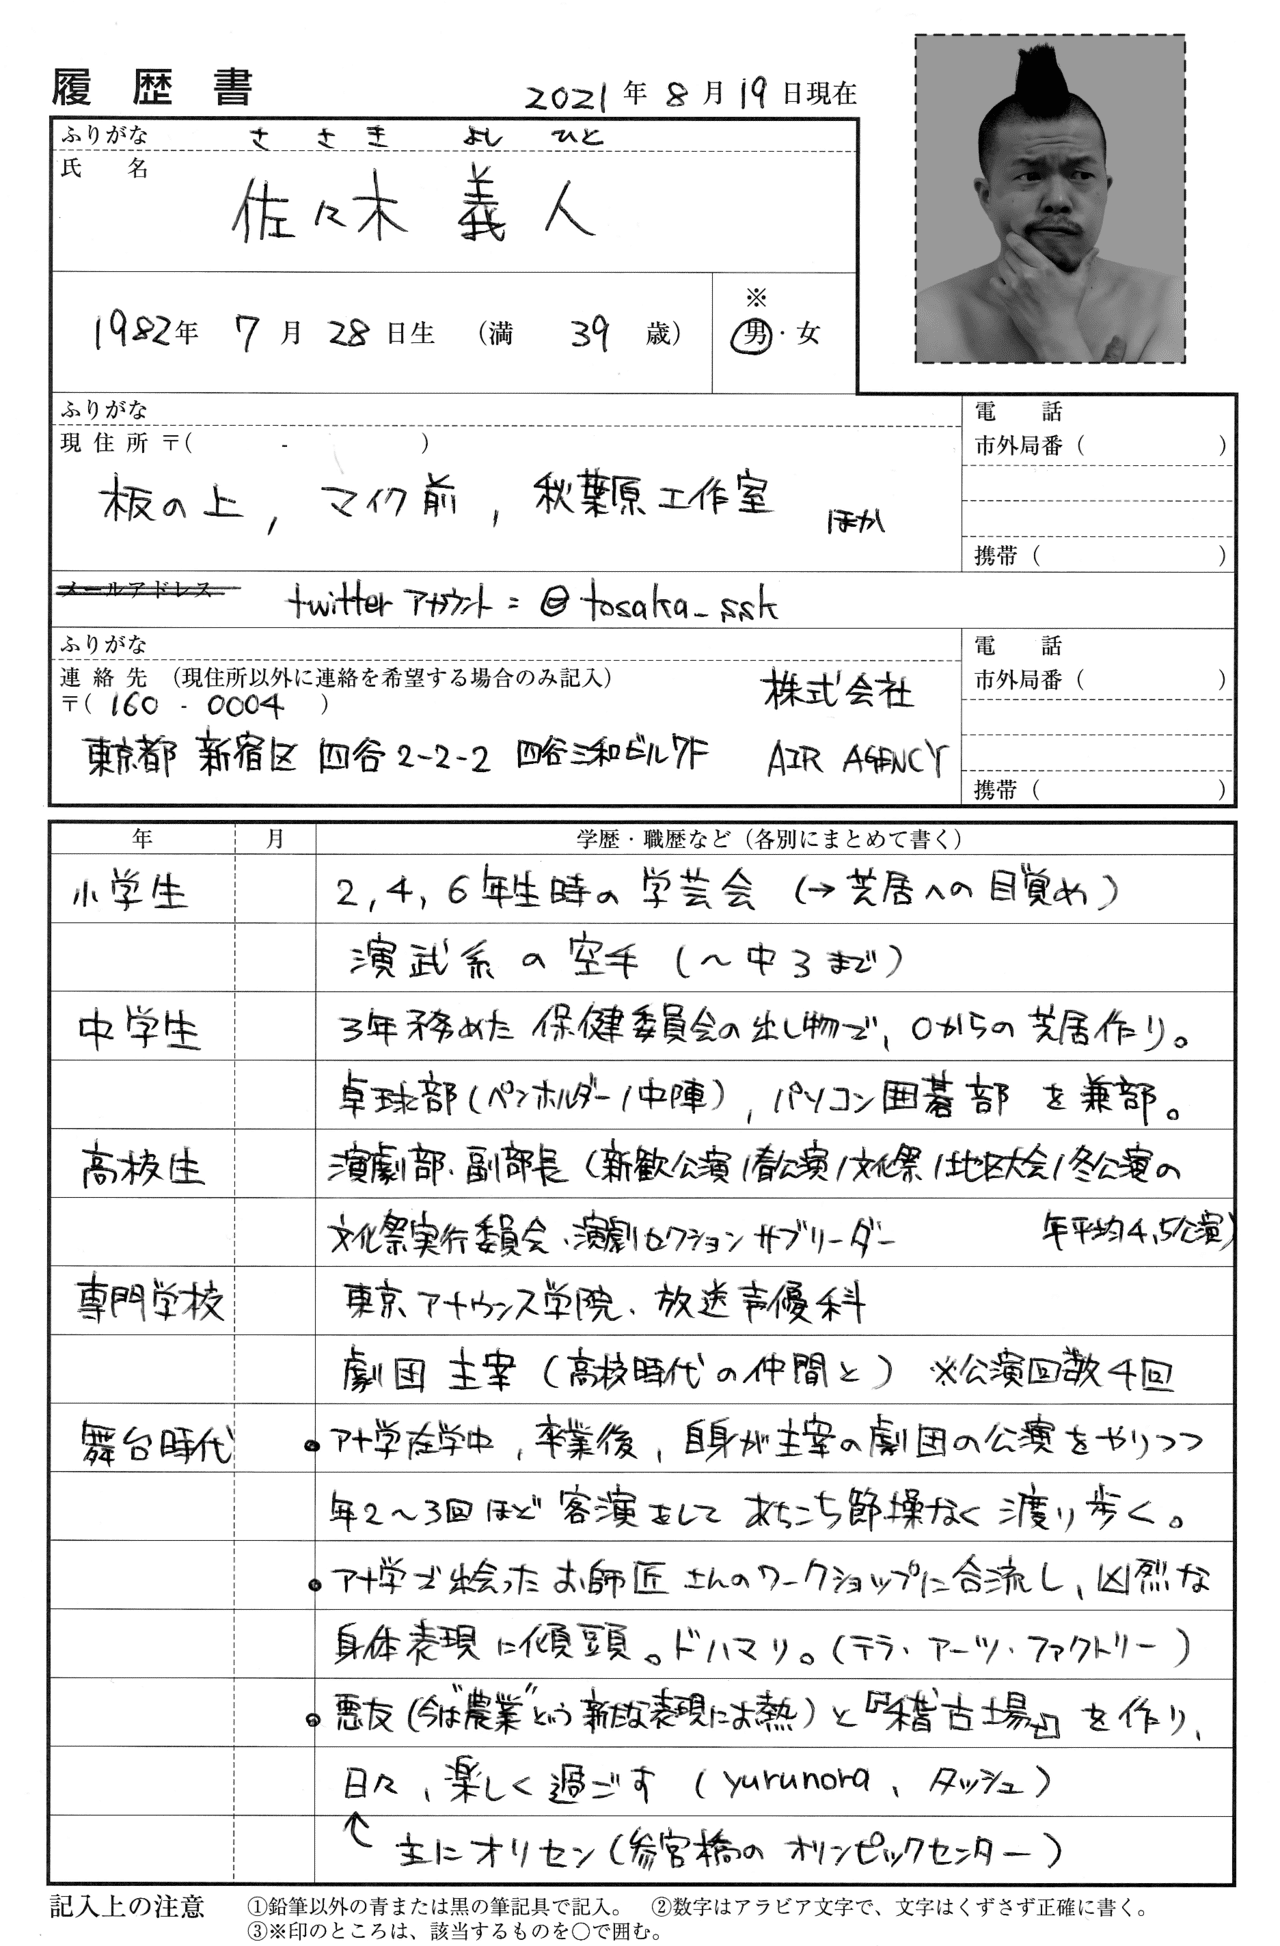 履歴書
2021年8月19日現在
ふりがな ささき よしひと
氏名
佐々木 義人
※
1982年 7月 28日生 (満 39 歳) 男・女
ふりがな
現住所 〒( - )
板の上, マイク前, 秋葉原工作室 ほか
電話
市外局番 ( )
携帯 ( )
メールアドレス twitter アカウント:@tosaka_ssk
ふりがな
連絡先 (現住所以外に連絡を希望する場合のみ記入) 株式会社
〒( 160 - 0004 )
東京都 新宿区 四谷2-2-2 四谷三和ビル7F AIR AGENCY
電話
市外局番 ( )
携帯 ( )
年 月 学歴・職歴など(各別にまとめて書く)
小学生 2,4,6年生時の学芸会 (→芝居への目覚め)
演武系の空手(〜中3まで)
中学生 3年務めた保健委員会の出し物で、0からの芝居作り。
卓球部(ペンホルダー/中陣), パソコン囲碁部を兼部。
高校生 演劇部・副部長(新歓公演/春公演/文化祭/地区大会/冬公演の
文化祭実行委員会・演劇セクションサブリーダー 年平均4,5公演)
専門学校 東京アナウンス学院・放送声優科
劇団主宰(高校時代の仲間と) ※公演回数4回
舞台時代 ・アナ学在学中,卒業後,自身が主宰の劇団の公演をやりつつ
年2〜3回ほど客演をして あちこち節操なく渡り歩く。
・アナ学で出会ったお師匠さんのワークショップに合流し、凶烈な
身体表現に傾頭。ドハマリ。(テラ・アーツ・ファクトリー)
・悪友(今は"農業"という新たな表現にお熱)と『稽古場』を作り、
日々、楽しく過ごす (yurunora、タッシュ)
↑主にオリセン(参宮橋のオリンピックセンター)
記入上の注意 ①鉛筆以外の青または黒の筆記具で記入。 ②数字はアラビア文字で、文字はくずさず正確に書く。
③※印のところは、該当するものを○で囲む。